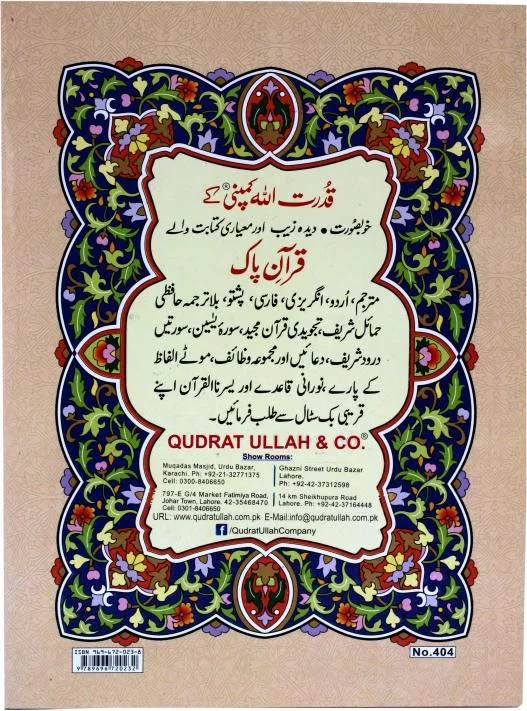 قدرت اللہ کمپنی® کے
خوبصورت • دیدہ زیب اور معیاری کتابت والے
قرآن پاک
مترجم، اُردو، انگریزی، فارسی، پشتو، بلا ترجمہ حافظی
حمائل شریف، تجویدی قرآن مجید، سورۂ یٰسین، سورتیں
درود شریف، دعائیں اور مجموعہ وظائف، موٹے الفاظ
کے پارے، نورانی قاعدے اور یسرنا القرآن اپنے
قریبی بک سٹال سے طلب فرمائیں۔
QUDRAT ULLAH & CO.®
Show Rooms:
Muqadas Masjid, Urdu Bazar,
Karachi. Ph: +92-21-32771375
Cell: 0300-8406650
Ghazni Street Urdu Bazar
Lahore.
Ph: +92-42-37312598
797-E G/4 Market Fatimiya Road,
Johar Town, Lahore. 42-35468470
Cell: 0301-8406650
14 km Sheikhupura Road
Lahore. Ph: +92-42-37164448
URL: www.qudratullah.com.pk E-Mail:info@qudratullah.com.pk
f /QudratUllahCompany
ISBN 969-672-023-8
9 789696 720232
No.404